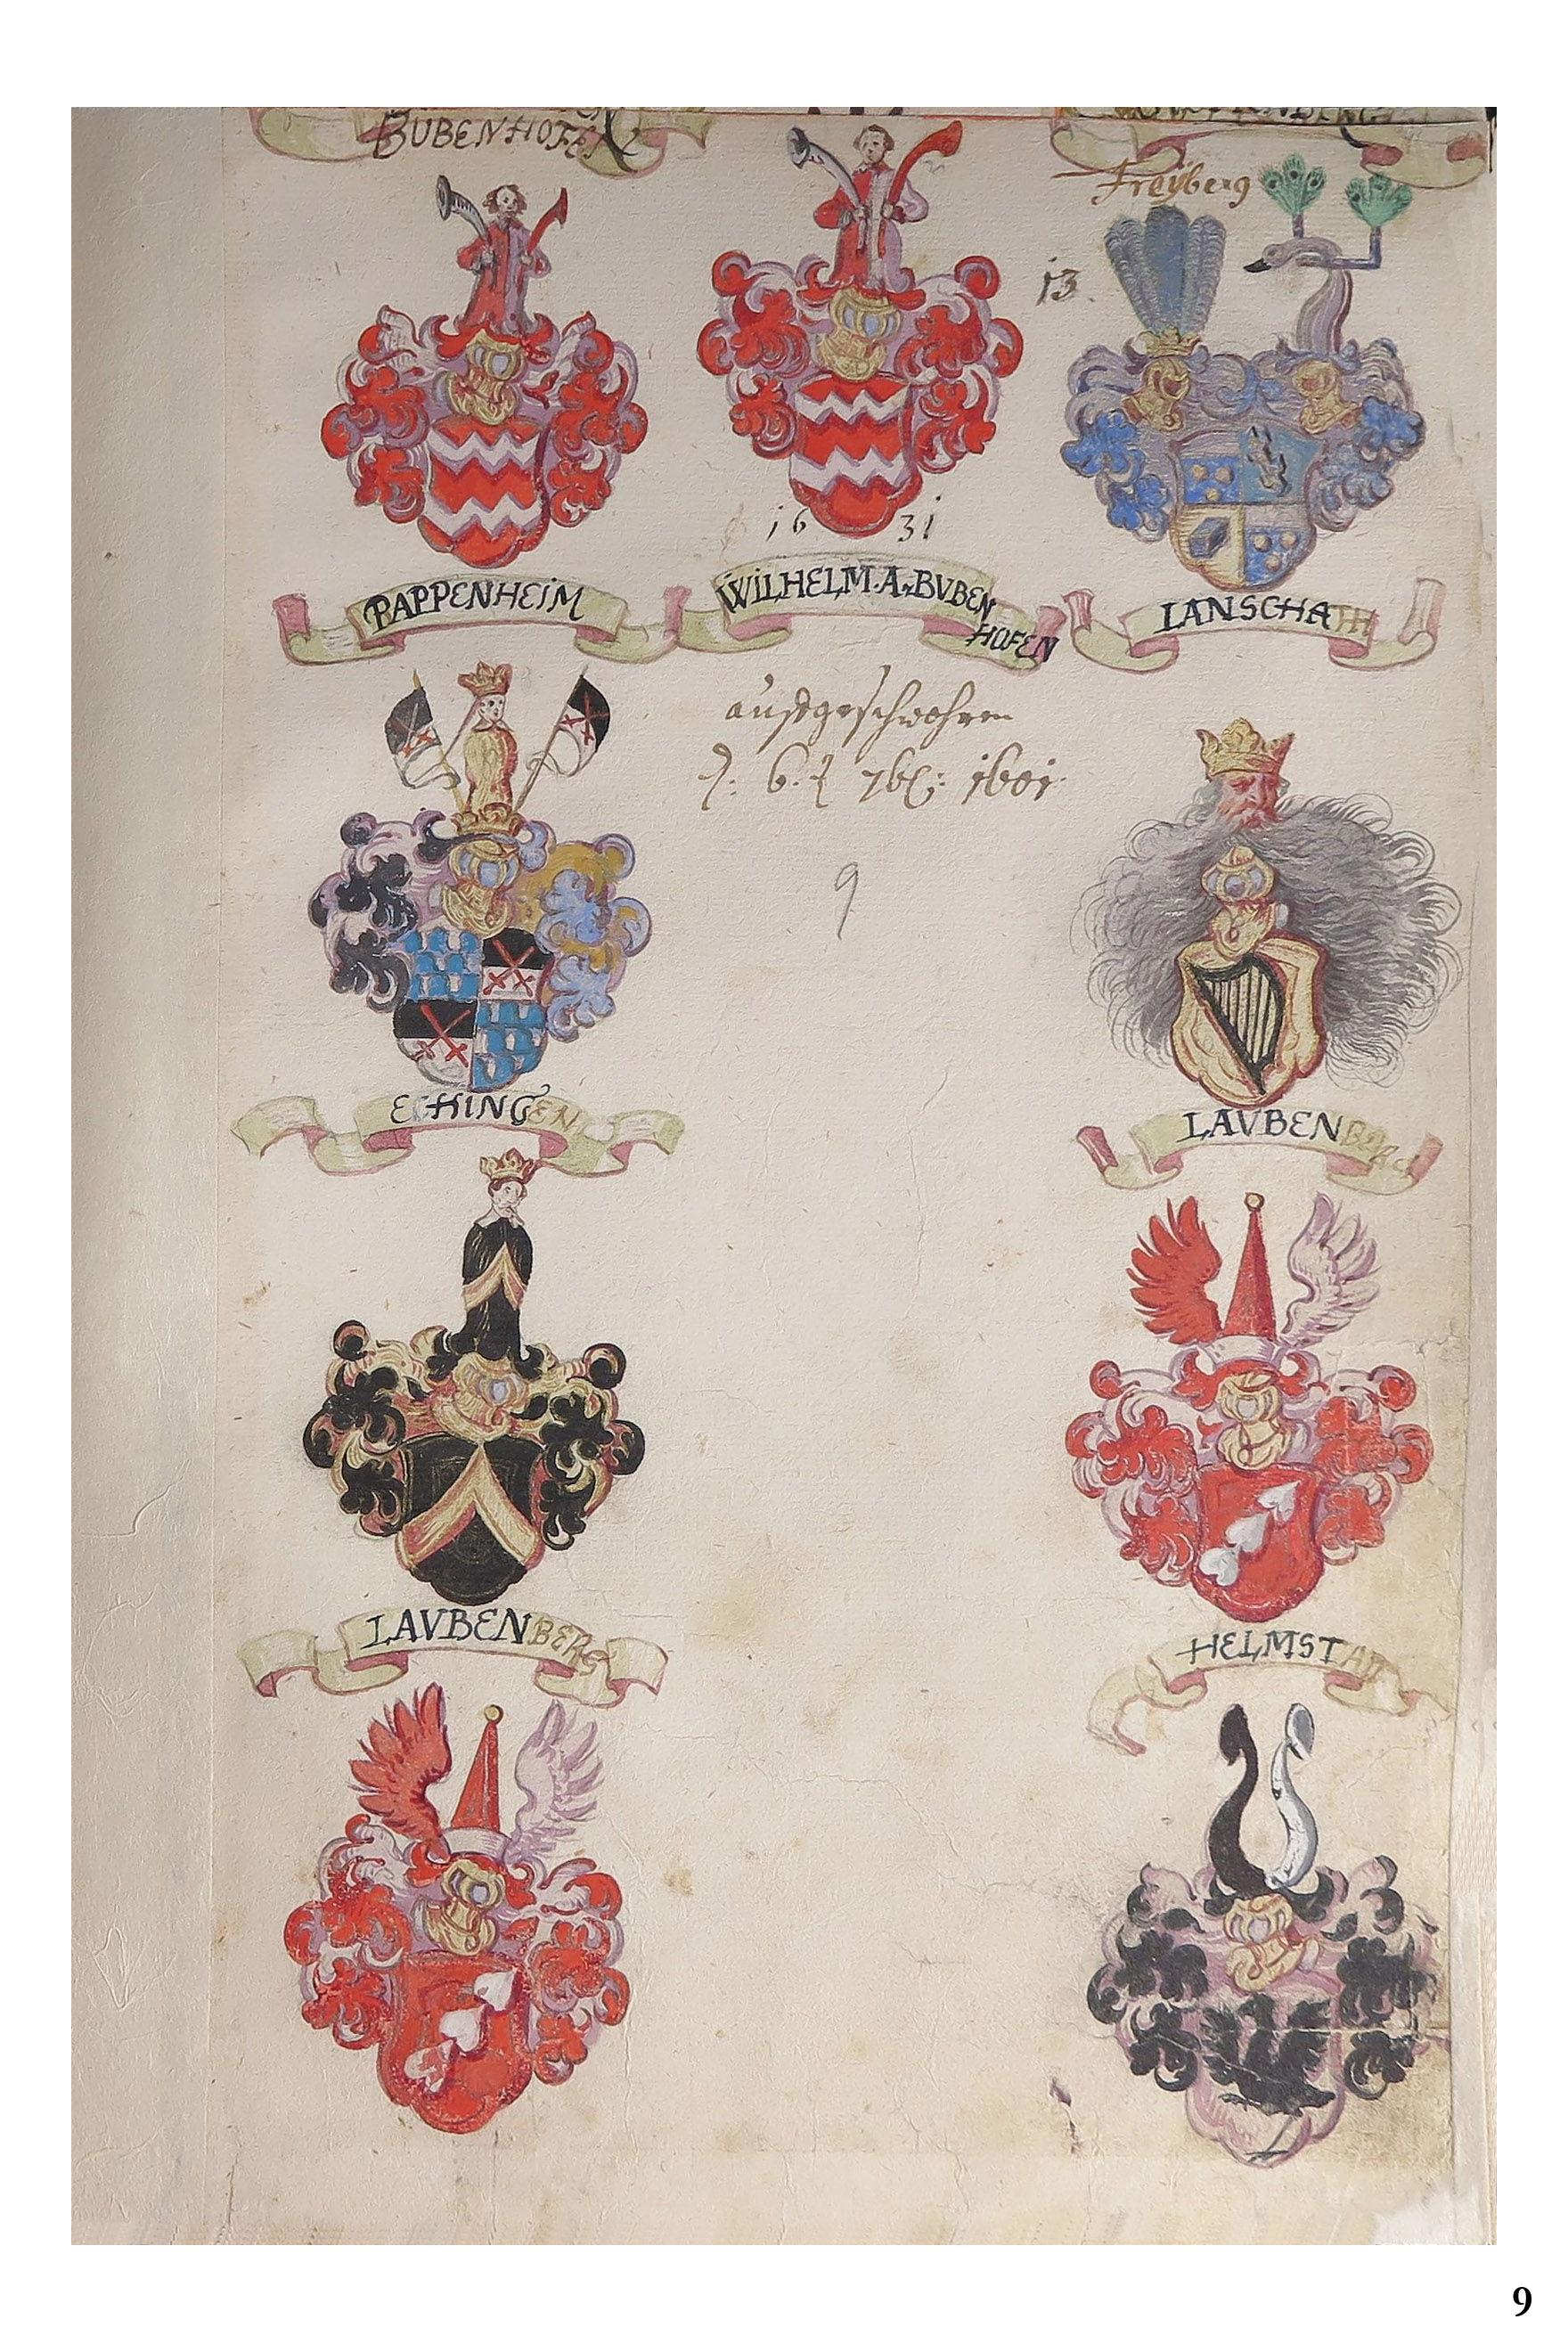 BUBENHOFEN
Freÿberg
13.
16 31
PAPPENHEIM
WILHELM.A.BVBEN
HOFEN
LANSCHATH
außgeschwohren
d: 6. 7br: 1601.
9
ECHINGEN
LAVBENBERG
LAVBENBERG
HELMSTAT
9